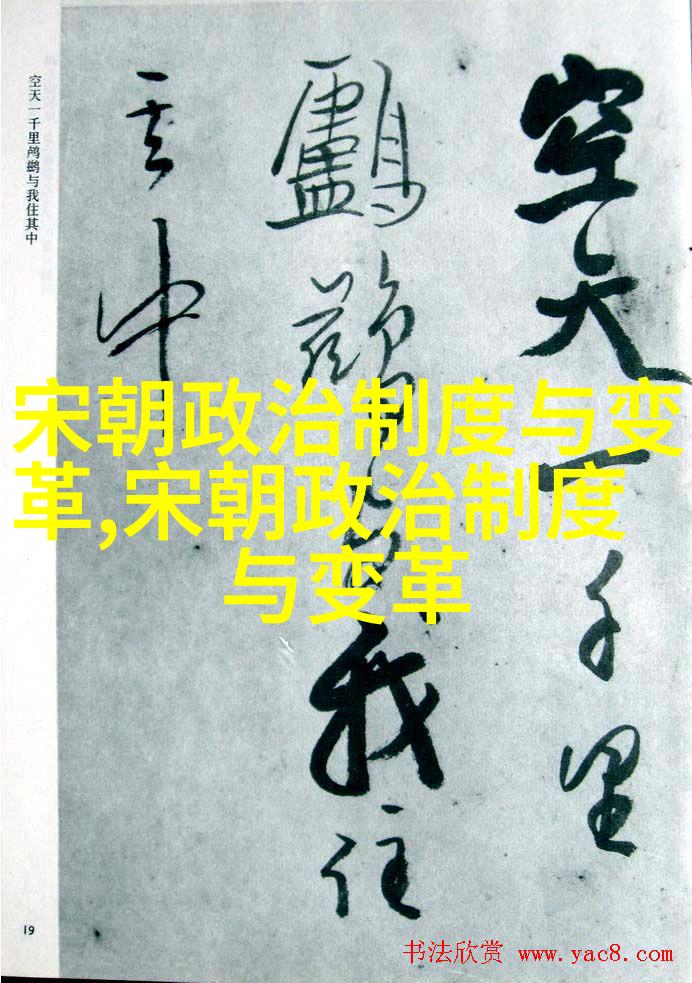 空天一千里
鸬鹚与我住
其中
空天一千里鸬鹚与我住其中
宋朝政治制度与变
革,宋朝政治制度
与变革
19
书法欣赏 www.yac8.com